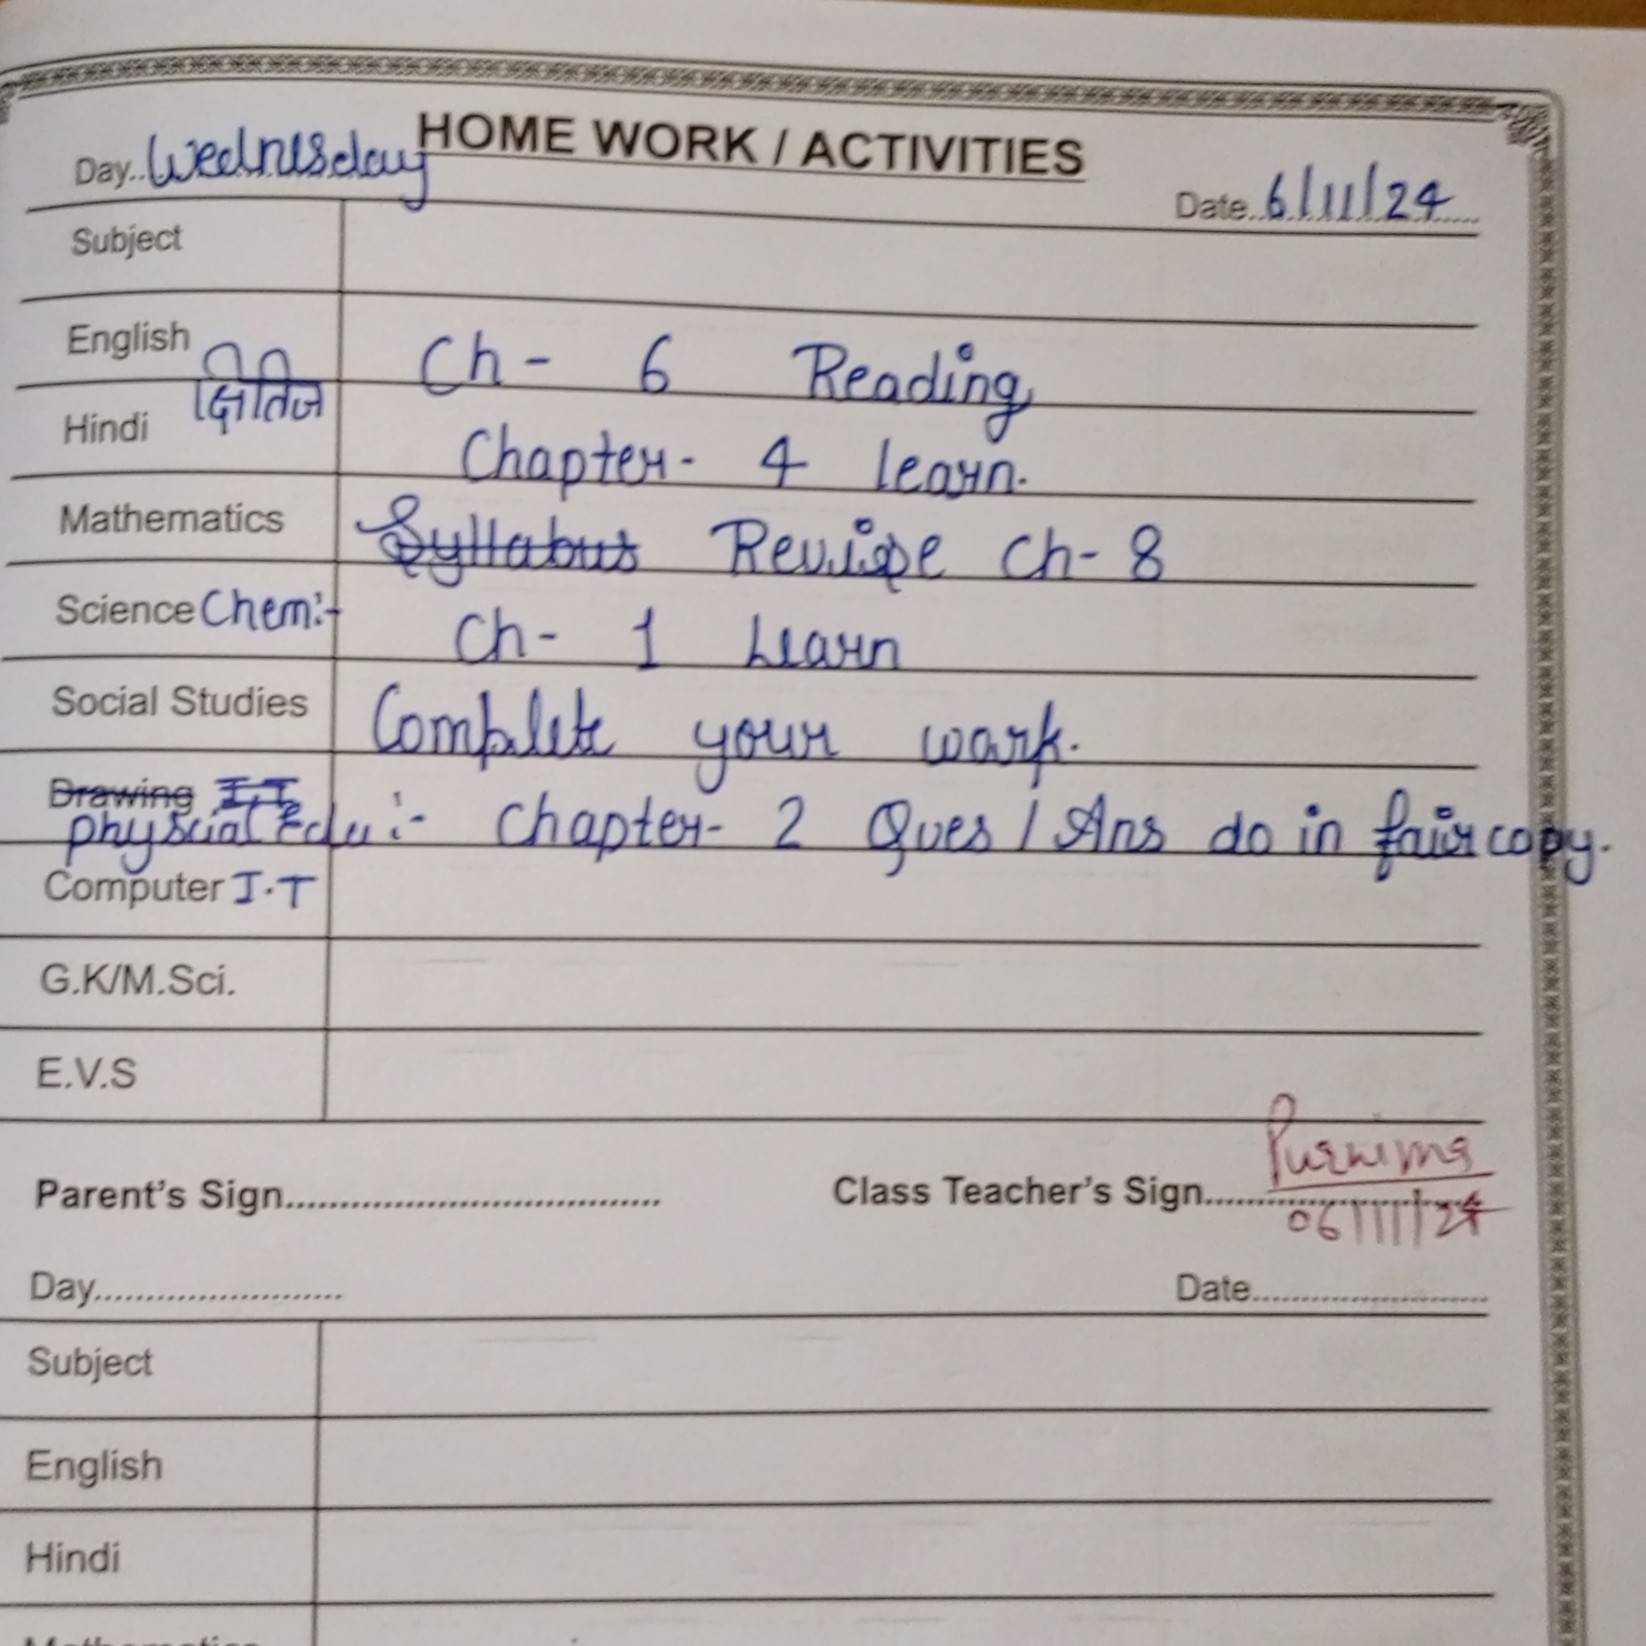 HOME WORK / ACTIVITIES
Day..Wednesday
Date..6/11/24
Subject
English Ch - 6 Reading
Hindi क्षितिज Chapter - 4 learn.
Mathematics Syllabus Revise Ch - 8
Science Chem:- Ch - 1 Learn
Social Studies Complete your work.
Drawing I.T
physcial Edu :- Chapter - 2 Ques / Ans do in fair copy.
Computer I.T
G.K/M.Sci.
E.V.S
Parent's Sign.................................... Class Teacher's Sign......Purnima
06/11/24
Day........................ Date........................
Subject
English
Hindi
Mathematics